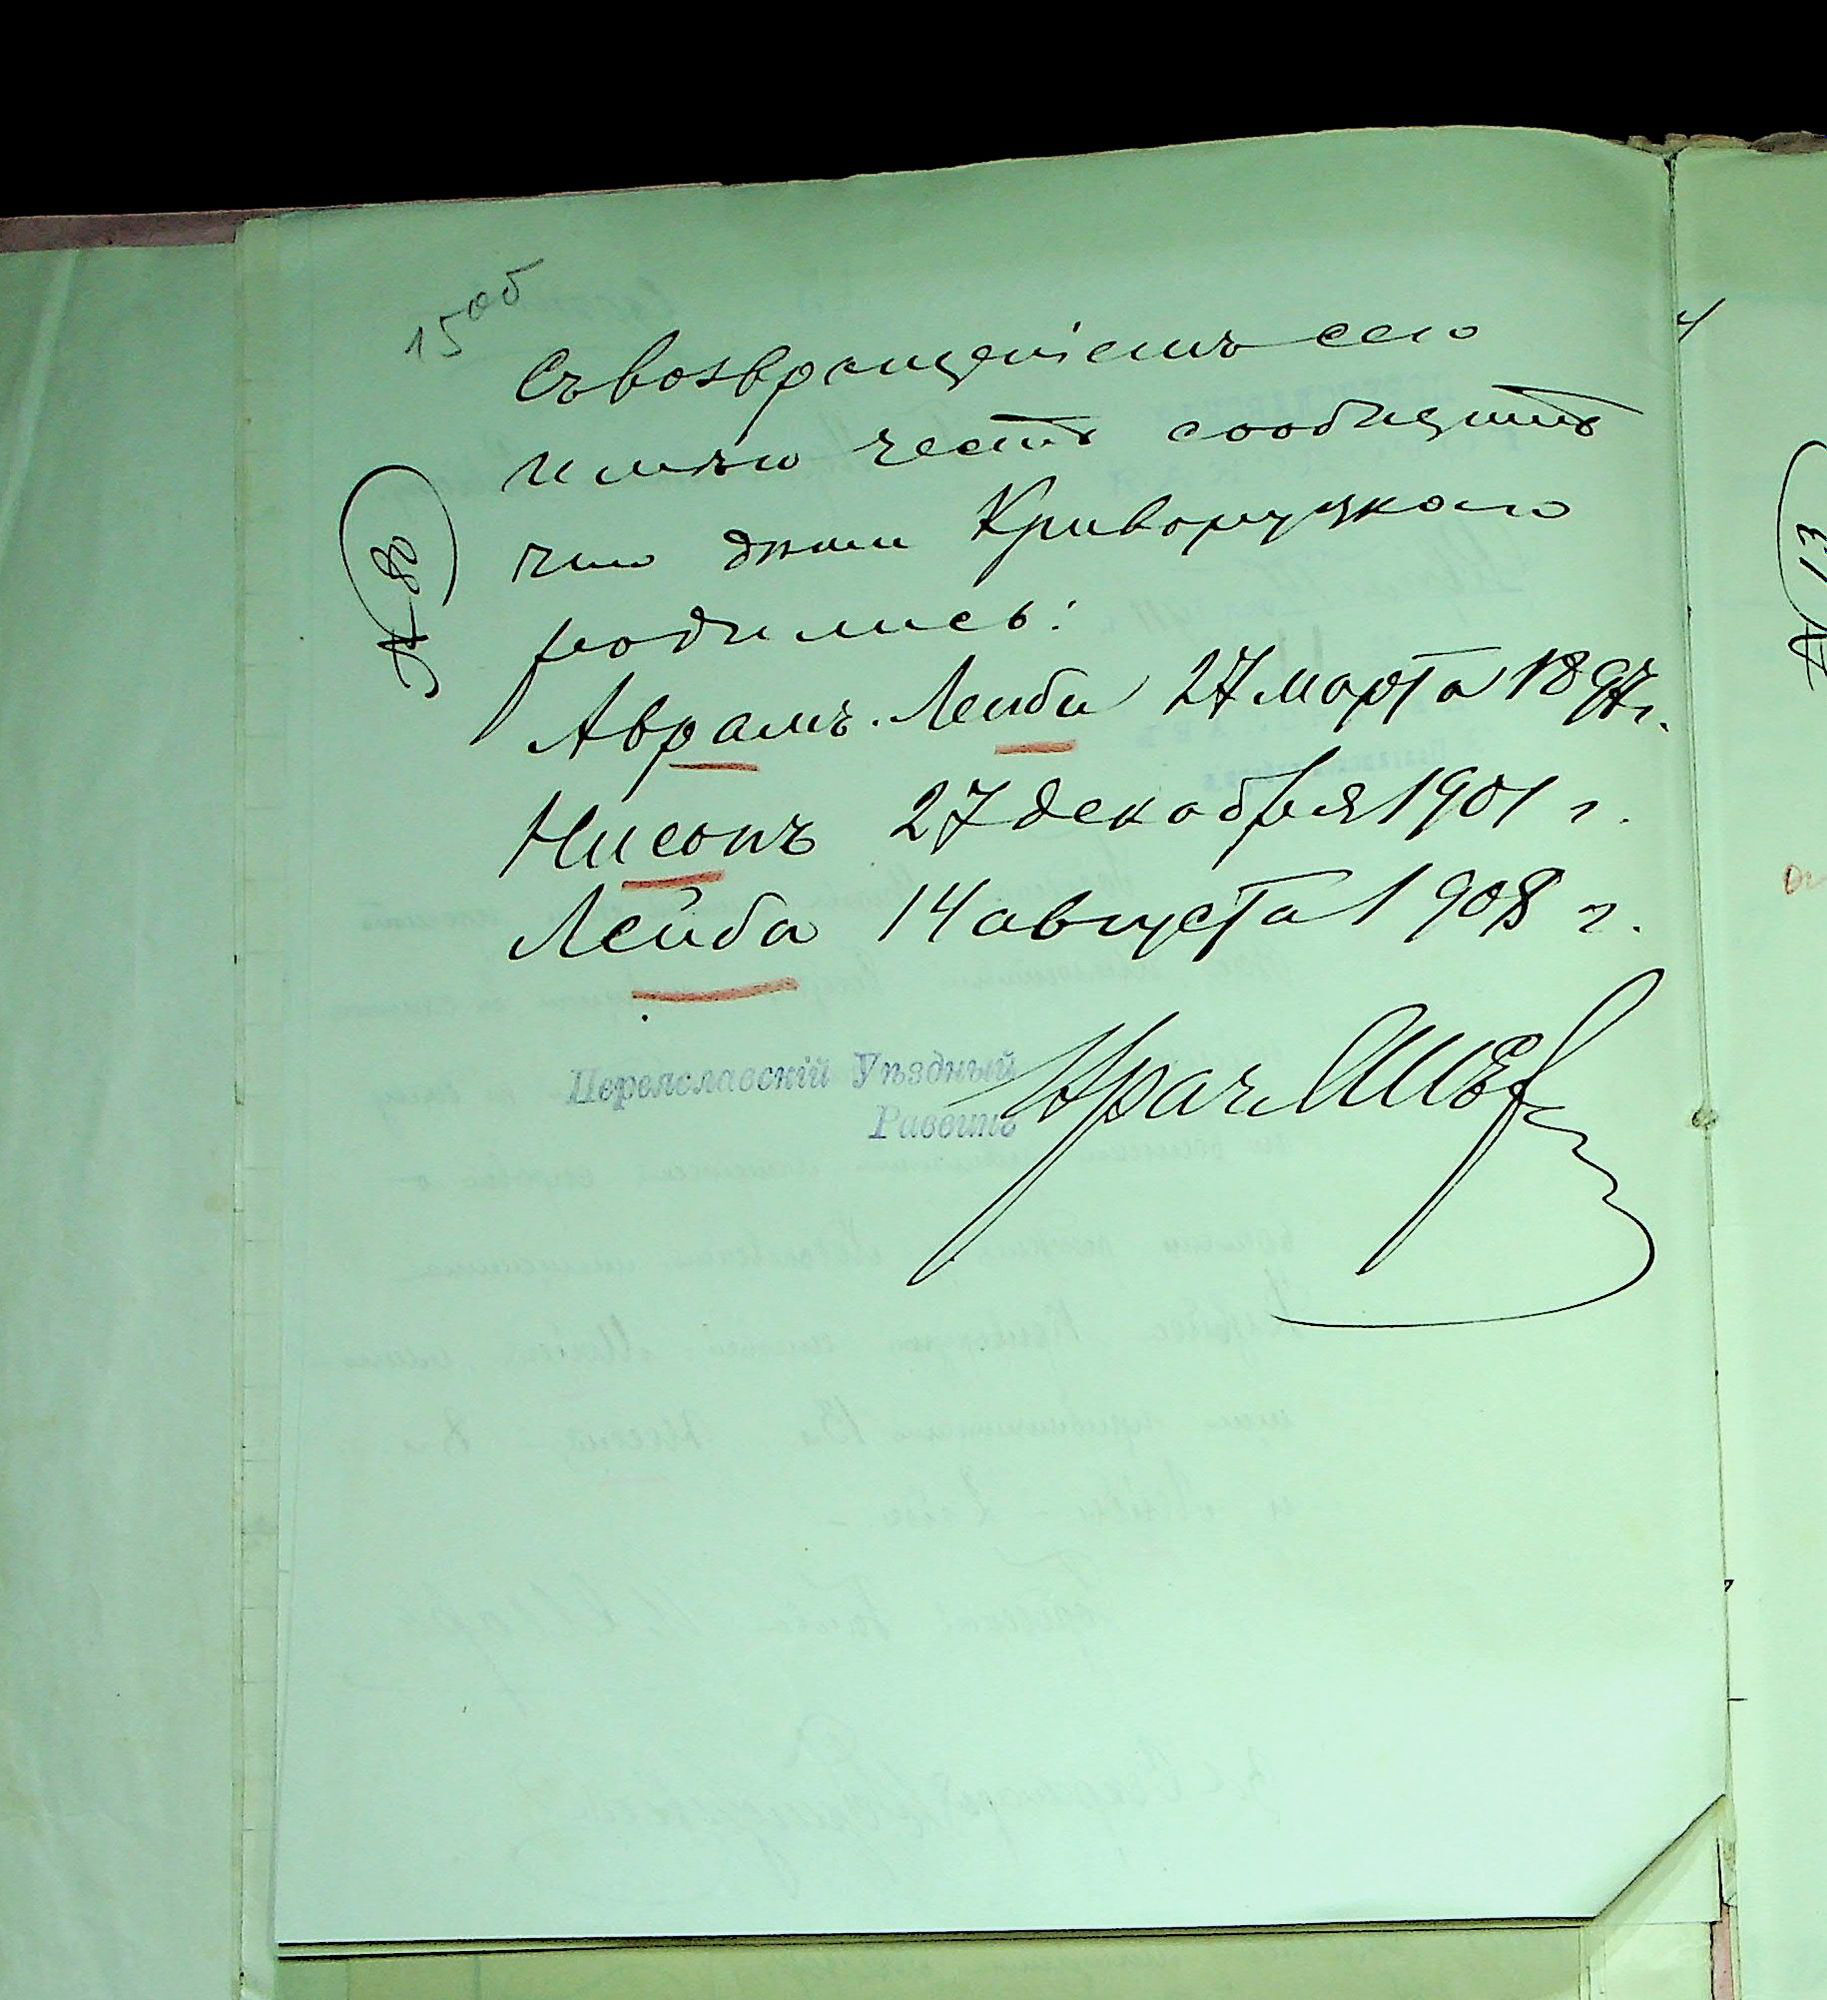 15 об
Съ возвращеніемъ сего
имѣю честь сообщить
что дѣти Криворуцкаго
родились:
Аврамъ-Лейба 27 марта 1897 г.
Нисонъ 27 декабря 1901 г.
Лейба 14 августа 1908 г.
Переяславскій Уѣздный
Раввинъ
№ 80